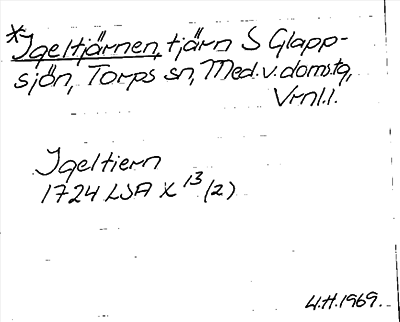 *Igeltjärnen, tjärn S Glapp-
sjön, Torps sn, Med.v.domstg,
Vrnl.l.
Igeltiern
1724 LSA X 13 (2)
L.H. 1969.